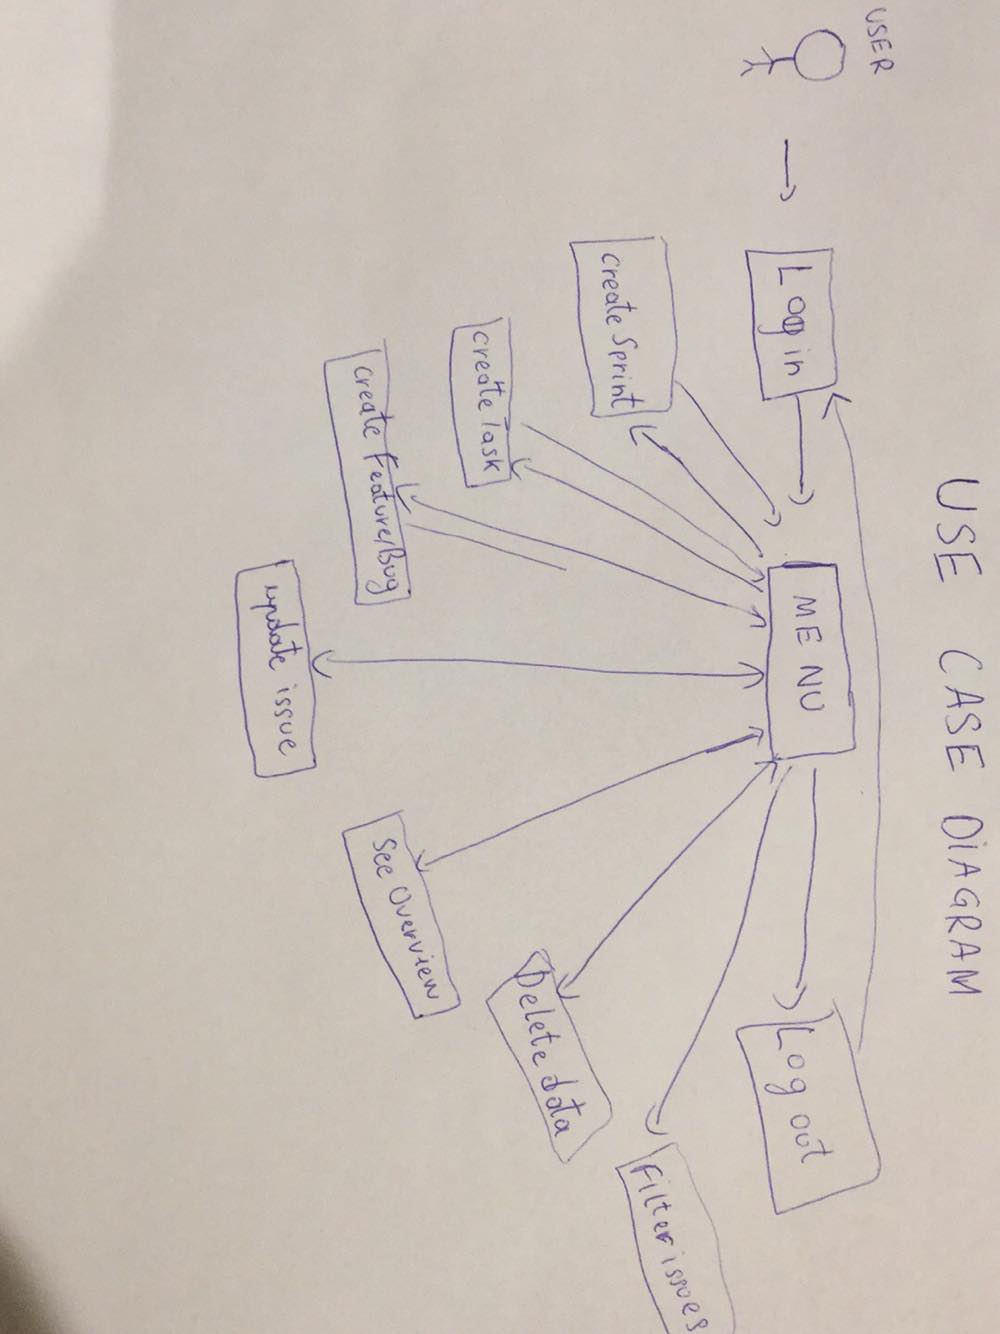 USE CASE DIAGRAM
USER
Login
MENU
Log out
create Sprint
create Task
create Feature/Bug
update issue
See Overview
Delete data
Filter issues